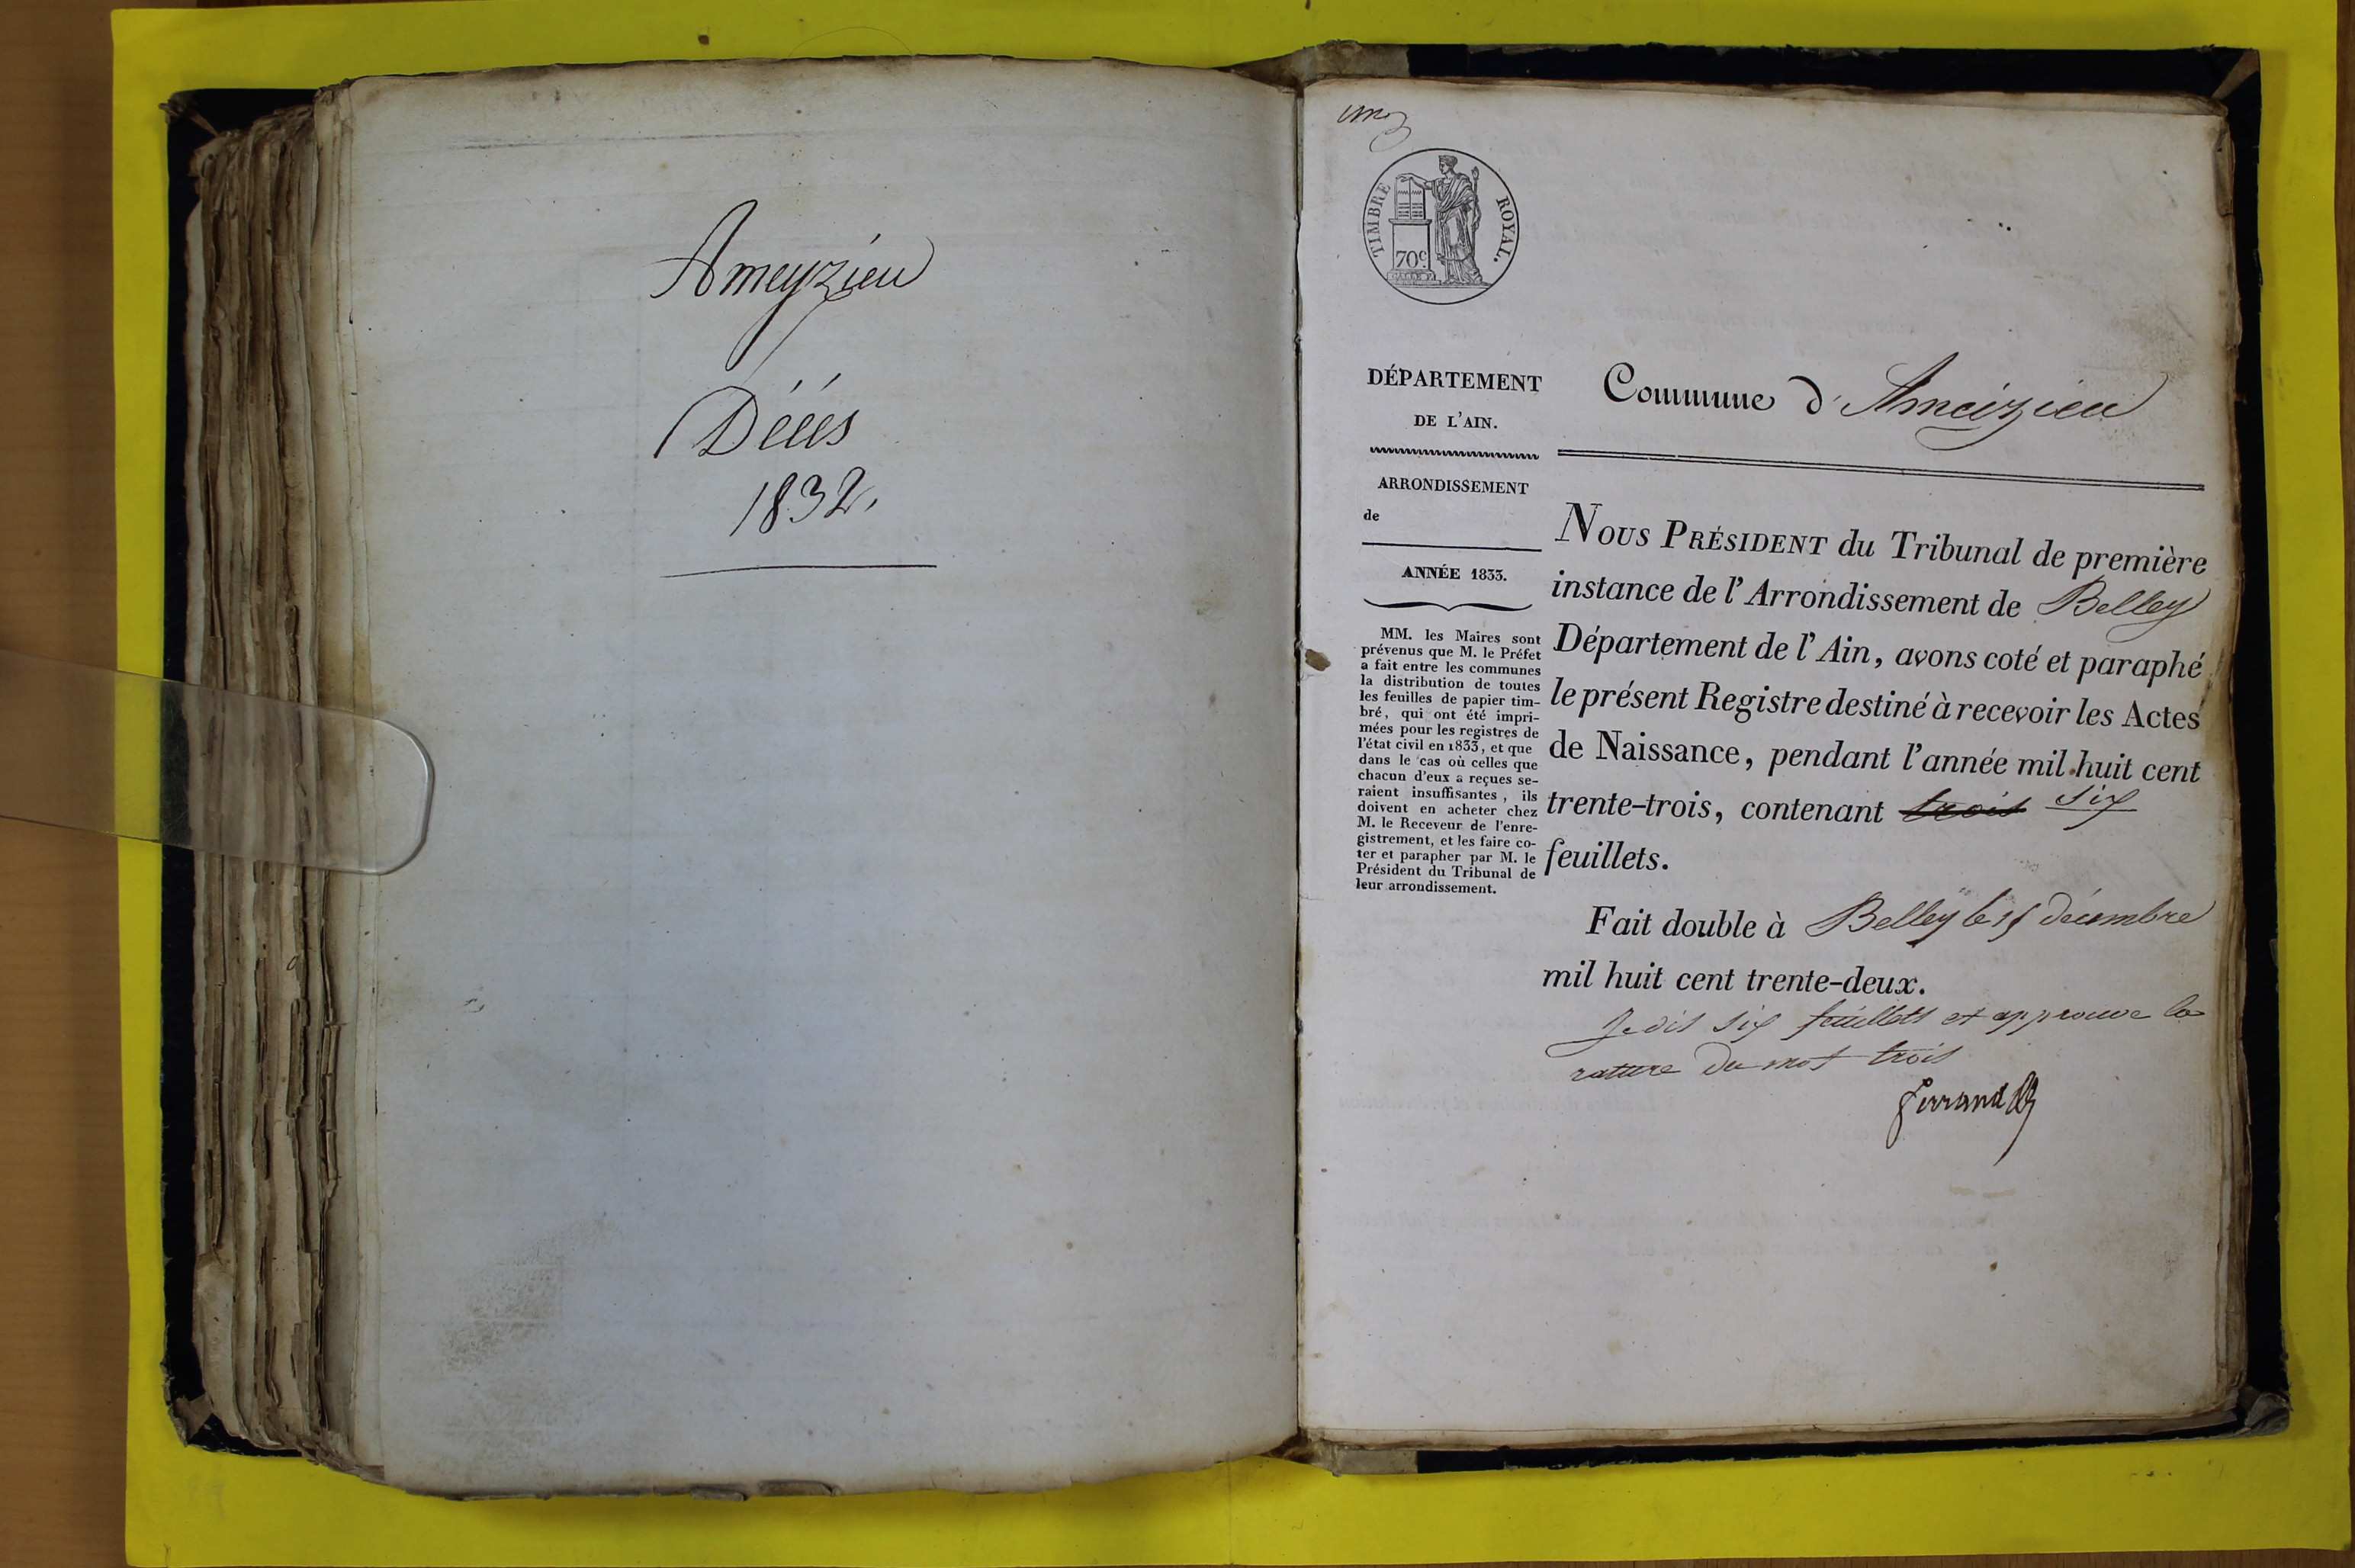 Ameyzieu
Décès
1832.
un
TIMBRE ROYAL.
70c
DÉPARTEMENT
DE L'AIN.
ARRONDISSEMENT
de
ANNÉE 1833.
MM. les Maires sont
prévenus que M. le Préfet
a fait entre les communes
la distribution de toutes
les feuilles de papier tim-
bré, qui ont été impri-
mées pour les registres de
l'état civil en 1833, et que
dans le cas où celles que
chacun d'eux a reçues se-
raient insuffisantes, ils
doivent en acheter chez
M. le Receveur de l'enre-
gistrement, et les faire co-
ter et parapher par M. le
Président du Tribunal de
leur arrondissement.
Commune d'Ameizieu
NOUS PRÉSIDENT du Tribunal de première
instance de l'Arrondissement de Belley
Département de l'Ain, avons coté et paraphé
le présent Registre destiné à recevoir les Actes
de Naissance, pendant l'année mil huit cent
trente-trois, contenant trois six
feuillets.
Fait double à Belley le 15 décembre
mil huit cent trente-deux.
Je dis six feuillets et approuve la
rature du mot trois
Ferrand